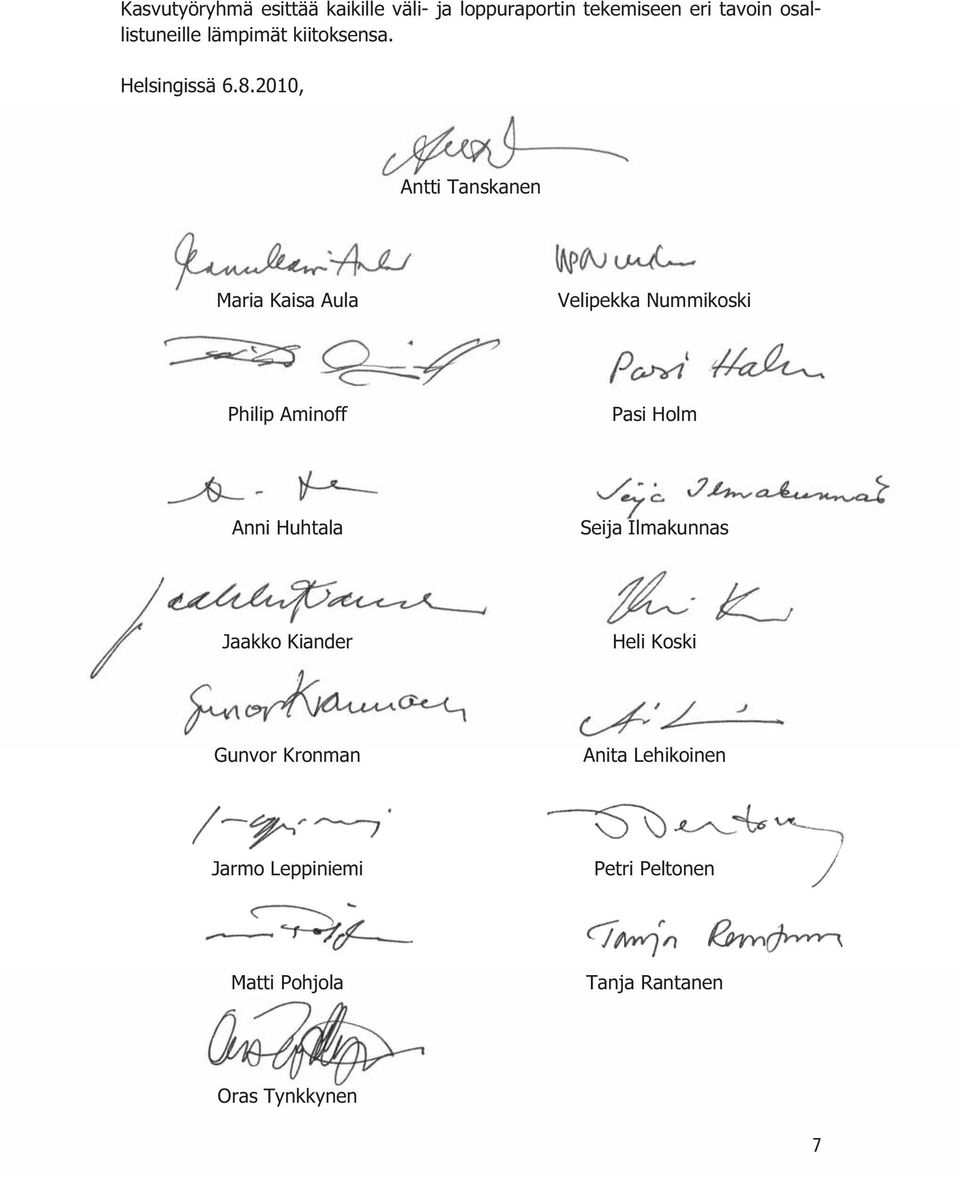 Kasvutyöryhmä esittää kaikille väli- ja loppuraportin tekemiseen eri tavoin osal-
listuneille lämpimät kiitoksensa.
Helsingissä 6.8.2010,
Antti Tanskanen
Maria Kaisa Aula Velipekka Nummikoski
Pasi Holm
Philip Aminoff Pasi Holm
Seija Ilmakunnas
Anni Huhtala Seija Ilmakunnas
Jaakko Kiander Heli Koski
Gunvor Kronman
Gunvor Kronman Anita Lehikoinen
Jarmo Leppiniemi Petri Peltonen
Tanja Rantanen
Matti Pohjola Tanja Rantanen
Oras Tynkkynen
7